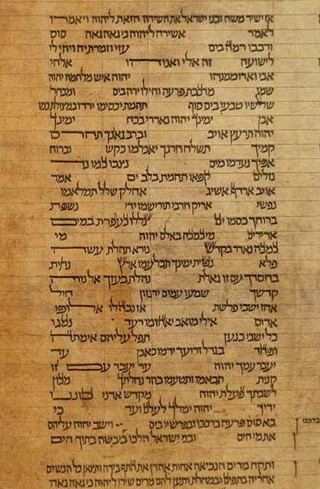 אז ישיר משה ובני ישראל את השירה הזאת ליהוה ויאמרו
לאמר אשירה ליהוה כי גאה גאה סוס
ורכבו רמה בים עזי וזמרת יה ויהי לי
לישועה זה אלי ואנוהו אלהי
אבי וארממנהו יהוה איש מלחמה יהוה
שמו מרכבת פרעה וחילו ירה בים ומבחר
שלשיו טבעו בים סוף תהמת יכסימו ירדו במצולת כמו
אבן ימינך יהוה נאדרי בכח ימינך
יהוה תרעץ אויב וברב גאונך תהרס
קמיך תשלח חרנך יאכלמו כקש וברוח
אפיך נערמו מים נצבו כמו נד
נזלים קפאו תהמת בלב ים אמר
אויב ארדף אשיג אחלק שלל תמלאמו
נפשי אריק חרבי תורישמו ידי נשפת
ברוחך כסמו ים צללו כעפרת במים
אדירים מי כמכה באלם יהוה מי
כמכה נאדר בקדש נורא תהלת עשה
פלא נטית ימינך תבלעמו ארץ נחית
בחסדך עם זו גאלת נהלת בעזך אל נוה
קדשך שמעו עמים ירגזון חיל
אחז ישבי פלשת אז נבהלו אלופי
אדום אילי מואב יאחזמו רעד נמגו
כל ישבי כנען תפל עליהם אימתה
ופחד בגדל זרועך ידמו כאבן עד
יעבר עמך יהוה עד יעבר עם זו
קנית תבאמו ותטעמו בהר נחלתך מכון
לשבתך פעלת יהוה מקדש אדני כוננו
ידיך יהוה ימלך לעלם ועד כי
בא סוס פרעה ברכבו ובפרשיו בים וישב יהוה עלהם
את מי הים ובני ישראל הלכו ביבשה בתוך הים
ותקח מרים הנביאה אחות אהרן את התף בידה ותצאן כל הנשים
אחריה בתפים ובמחלת ותען להם מרים שירו ליהוה כי גאה גאה